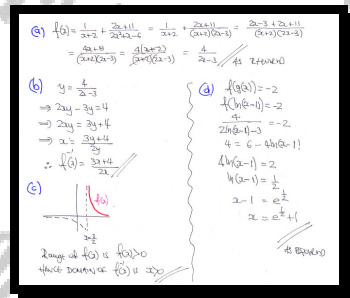 (a) f(x) = 1/(x+2) + (2x+11)/(2x²+x-6) = 1/(x+2) + (2x+11)/((x+2)(2x-3)) = (2x-3+2x+11)/((x+2)(2x-3))
= (4x+8)/((x+2)(2x-3)) = 4(x+2)/((x+2)(2x-3)) = 4/(2x-3) // AS REQUIRED
(b) y = 4/(2x-3)
⇒ 2xy - 3y = 4
⇒ 2xy = 3y+4
⇒ x = (3y+4)/(2y)
∴ f⁻¹(x) = (3x+4)/(2x) //
(c)
f(x)
x=3/2
Range of f(x) is f(x)>0
HENCE DOMAIN OF f⁻¹(x) IS x>0 //
(d) f(g(x)) = -2
f(ln(x-1)) = -2
4/(2ln(x-1)-3) = -2
4 = 6 - 4ln(x-1)
4ln(x-1) = 2
ln(x-1) = 1/2
x-1 = e^(1/2)
x = e^(1/2)+1 //
AS REQUIRED